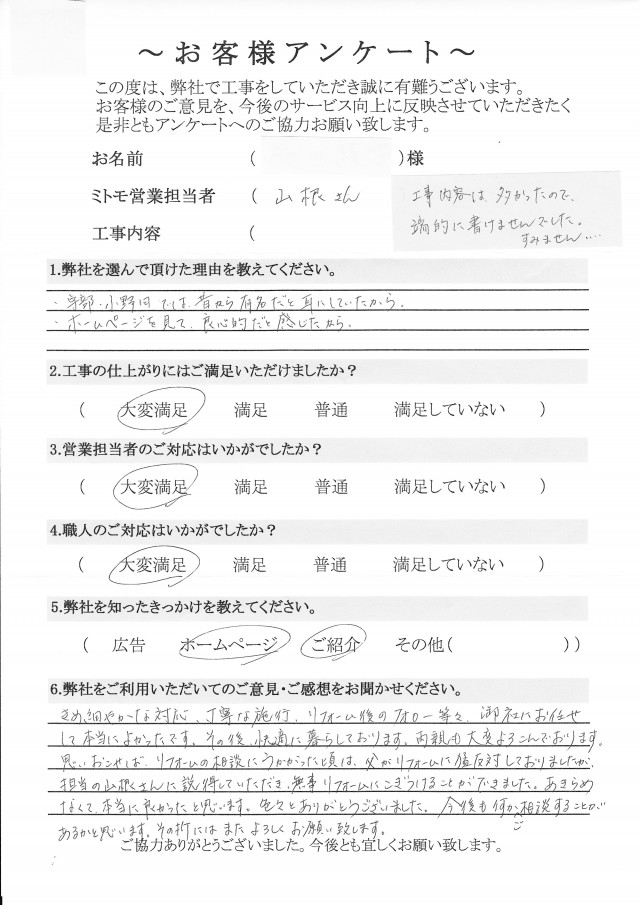 ～お客様アンケート～
この度は、弊社で工事をしていただき誠に有難うございます。
お客様のご意見を、今後のサービス向上に反映させていただきたく
是非ともアンケートへのご協力お願い致します。
お名前 ( )様
ミトモ営業担当者 ( 山根さん
工事内容 (
工事内容は、多かったので、
端的に書けませんでした。
すみません....
1.弊社を選んで頂けた理由を教えてください。
・宇部・小野田では、昔から有名だと耳にしていたから。
・ホームページを見て、良心的だと感じたから。
2.工事の仕上がりにはご満足いただけましたか？
( 大変満足 満足 普通 満足していない )
3.営業担当者のご対応はいかがでしたか？
( 大変満足 満足 普通 満足していない )
4.職人のご対応はいかがでしたか？
( 大変満足 満足 普通 満足していない )
5.弊社を知ったきっかけを教えてください。
( 広告 ホームページ ご紹介 その他( ))
6.弊社をご利用いただいてのご意見・ご感想をお聞かせください。
きめ細やかな対応、丁寧な施行、リフォーム後のフォロー等々、御社にお任せ
して本当によかったです。その後、快適に暮らしております。両親も大変よろこんでおります。
思いおこせば、リフォームの相談にうかがった頃は、父がリフォームに猛反対しておりましたが、
担当の山根さんに説得していただき、無事リフォームにこぎつけることができました。あきらめ
なくて、本当に良かったと思います。色々とありがとうございました。今後も何か相談することが
あるかと思います。その折にはまたよろしくお願い致します。
ご協力ありがとうございました。今後とも宜しくお願い致します。